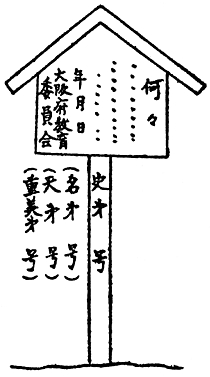 何々
年月日
大阪府教育
委員会
史才 号
(名才 号)
(天才 号)
(重美才 号)